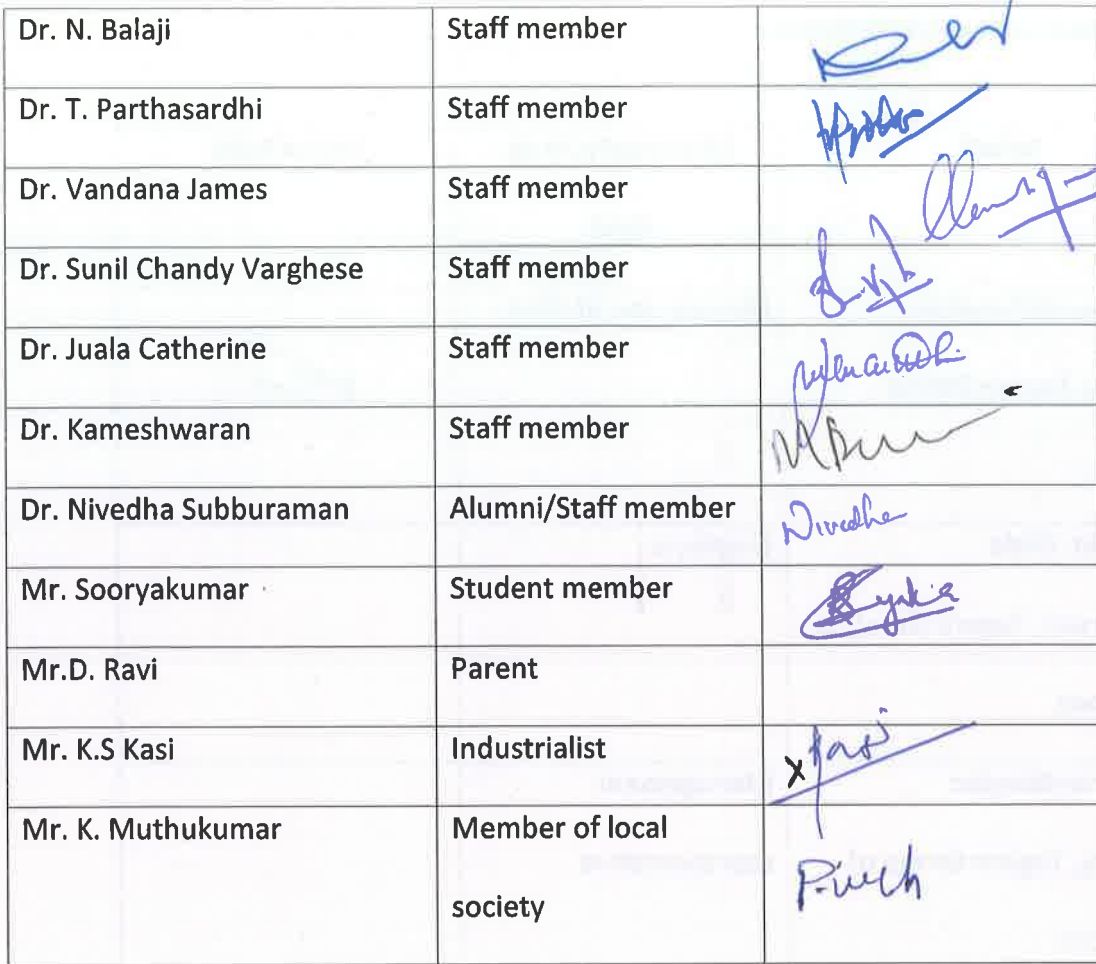 Dr. N. Balaji Staff member
Dr. T. Parthasardhi Staff member
Dr. Vandana James Staff member
Dr. Sunil Chandy Varghese Staff member
Dr. Juala Catherine Staff member
Dr. Kameshwaran Staff member
Dr. Nivedha Subburaman Alumni/Staff member Nivedha
Mr. Sooryakumar Student member
Mr.D. Ravi Parent
Mr. K.S Kasi Industrialist x Kasi
Mr. K. Muthukumar Member of local
society